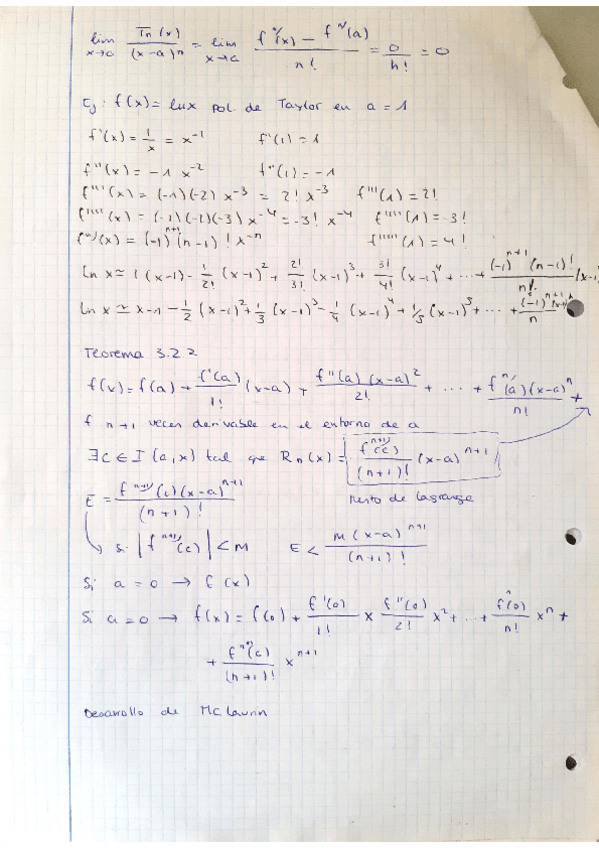 lim x→a Tn(x)/(x-a)^n = lim x→a (f^n(x) - f^n(a))/n! = 0/n! = 0
Ej: f(x) = lnx pol. de Taylor en a = 1
f'(x) = 1/x = x^-1 f'(1) = 1
f''(x) = -1 x^-2 f''(1) = -1
f'''(x) = (-1)(-2) x^-3 = 2! x^-3 f'''(1) = 2!
f''''(x) = (-1)(-2)(-3) x^-4 = -3! x^-4 f''''(1) = -3!
f^n)(x) = (-1)^n+1 (n-1)! x^-n f'''''(1) = 4!
ln x ≃ 1(x-1) - 1/2! (x-1)^2 + 2!/3! (x-1)^3 + 3!/4! (x-1)^4 + ... + (-1)^n+1 (n-1)!/n! (x-1
ln x ≃ x-1 - 1/2 (x-1)^2 + 1/3 (x-1)^3 - 1/4 (x-1)^4 + 1/5 (x-1)^5 + ... + (-1)^n+1/n
Teorema 3.2.2
f(x) = f(a) + f'(a)/1! (x-a) + f''(a)(x-a)^2/2! + ... + f^n)(a)(x-a)^n/n! +
f n+1 veces derivable en el entorno de a
∃c ∈ I (a,x) tal que Rn(x) = f^n+1)(c)/(n+1)! (x-a)^n+1
Resto de Lagrange
E = f^n+1)(c)(x-a)^n+1/(n+1)!
Si |f^n+1)(c)| < M E < M(x-a)^n+1/(n+1)!
Si a = 0 → f(x)
Si a = 0 → f(x) = f(0) + f'(0)/1! x f''(0)/2! x^2 + ... + f^n(0)/n! x^n +
+ f^n+1)(c)/(n+1)! x^n+1
Desarrollo de McLaurin